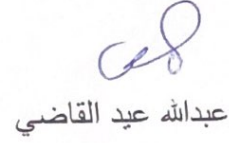 عبدالله عيد القاضي